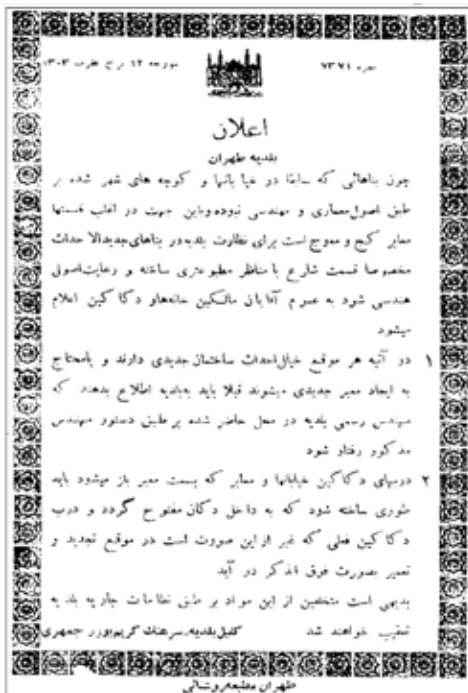 نمره ۷۳۷۱ مورخه ۱۲ برج عقرب ۱۳۰۳
اعلان
بلدیه طهران
چون بناهائی که سابقا در خیا بانها و کوچه های شهر شده بر
طبق اصول معماری و مهندسی نبوده وباین جهت در اغلب قسمتها
معابر کج و معوج است برای نظارت بلدیه در بناهای جدیدالا حداث
مخصوصا قسمت شارع با مناظر مطبوعتری ساخته و رعایت اصول
هندسی شود به عموم آقایان مالکین خانه هاو دکا کین اعلام
میشود
۱ در آتیه هر موقع خیال احداث ساختمان جدیدی دارند و یا محتاج
به ایجاد معبر جدیدی میشوند قبلا باید به بلدیه اطلاع بدهند که
مهندس رسمی بلدیه در محل حاضر شده بر طبق دستور مهندس
مذکور رفتار شود
۲ دربهای دکاکین خیابانها و معابر که بسمت معبر باز میشود باید
طوری ساخته شود که به داخل دکان مفتوح گردد و درب
دکاکین فعلی که غیر از این صورت است در موقع تجدید و
تعمیر بصورت فوق الذکر در آید
بدیهی است متخلفین از این مواد بر طبق نظامات جاریه بلدیه
تعقیب خواهند شد کفیل بلدیه، سرهنگ کریم بوزر جمهری
طهران مطبعه روشنائی